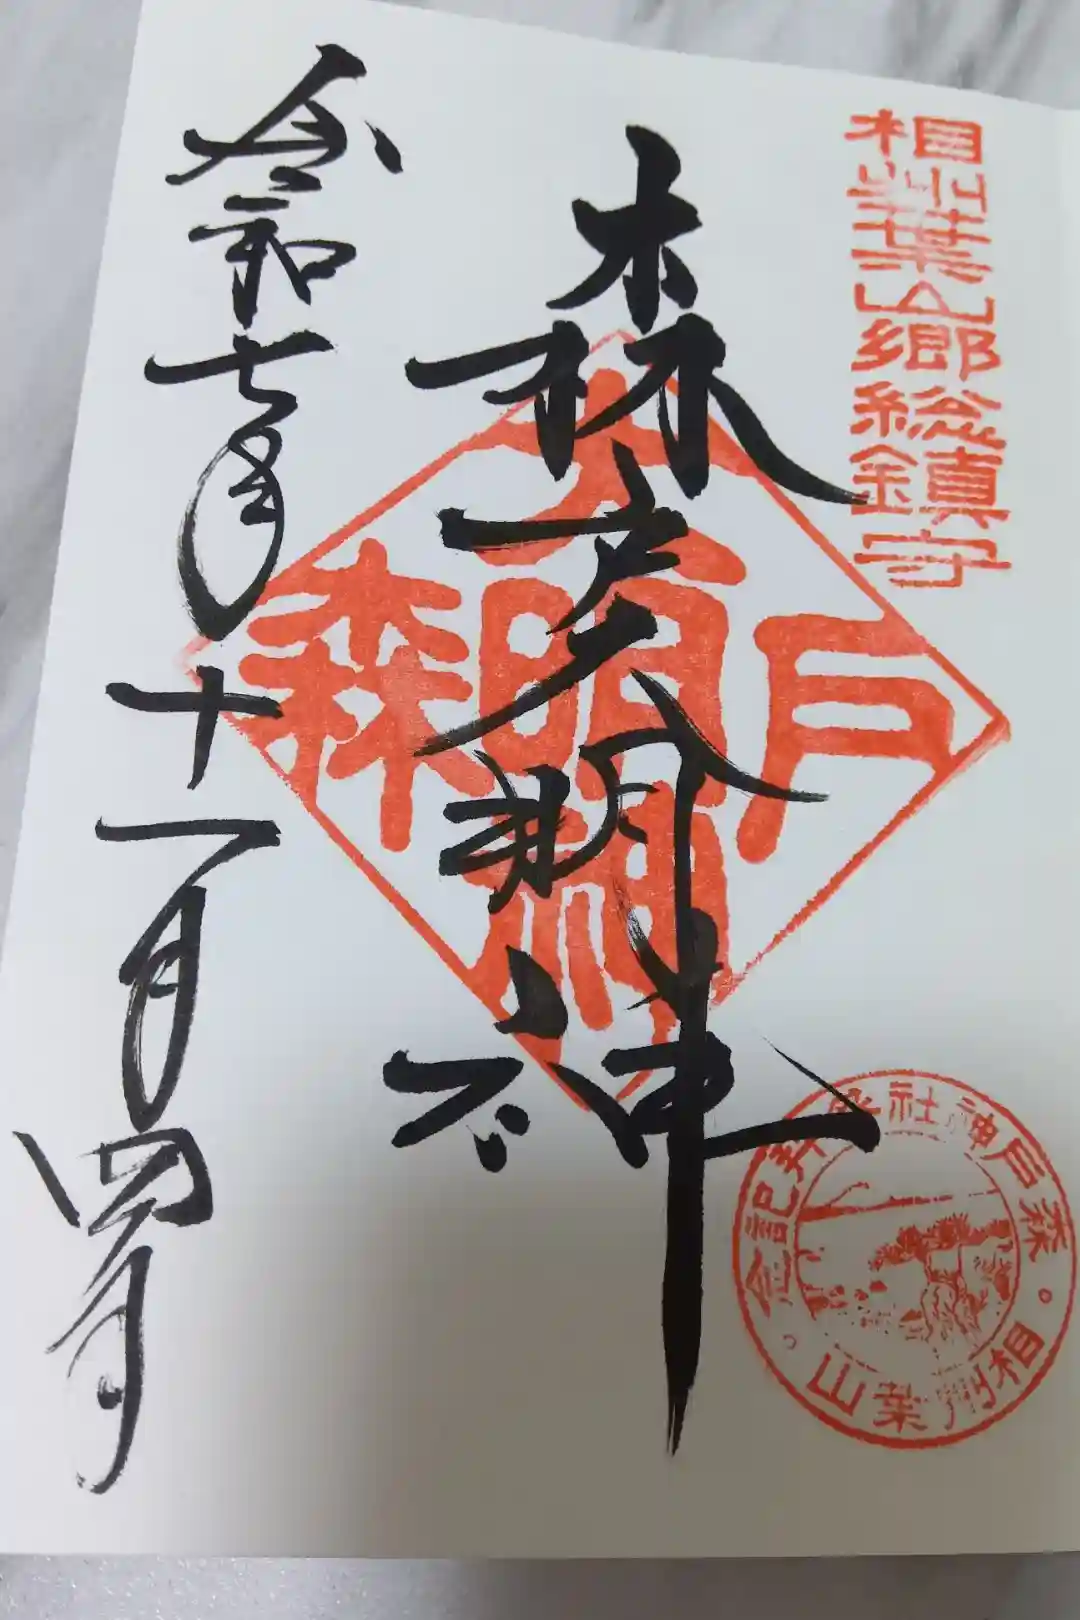 相州葉山郷総鎮守
森戸大明神
森戸大明神
令和七年十一月四日
森戸神社参拝記念
相州葉山